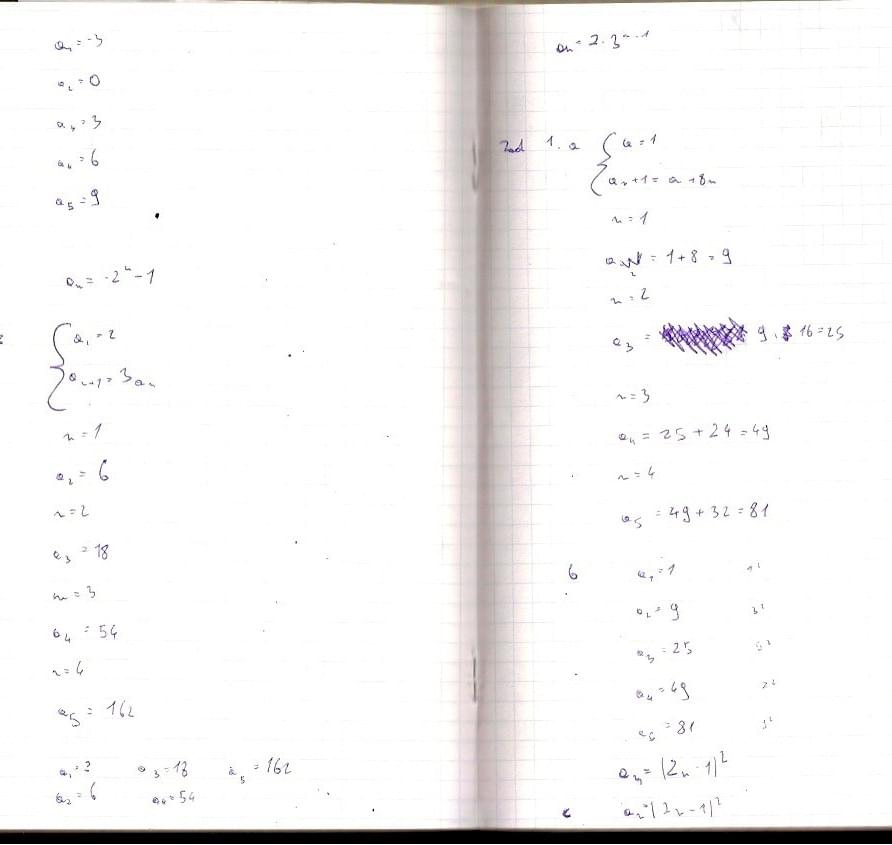 a₁ = -3
a₂ = 0
a₃ = 3
a₄ = 6
a₅ = 9
aₙ = -2ⁿ - 1
{ a₁ = 2
aₙ₊₁ = 3aₙ
n = 1
a₂ = 6
n = 2
a₃ = 18
n = 3
a₄ = 54
n = 4
a₅ = 162
a₁ = 2 a₃ = 18 a₅ = 162
a₂ = 6 a₄ = 54
aₙ = 2 · 3ⁿ⁻¹
Zad 1. a { a = 1
aₙ+1 = a + 8n
n = 1
a₂ = 1 + 8 = 9
n = 2
a₃ = 9 + 16 = 25
n = 3
a₄ = 25 + 24 = 49
n = 4
a₅ = 49 + 32 = 81
b a₁ = 1 1²
a₂ = 9 3²
a₃ = 25 5²
a₄ = 49 7²
a₅ = 81 9²
aₙ = (2n - 1)²
c aₙ = (2n - 1)²